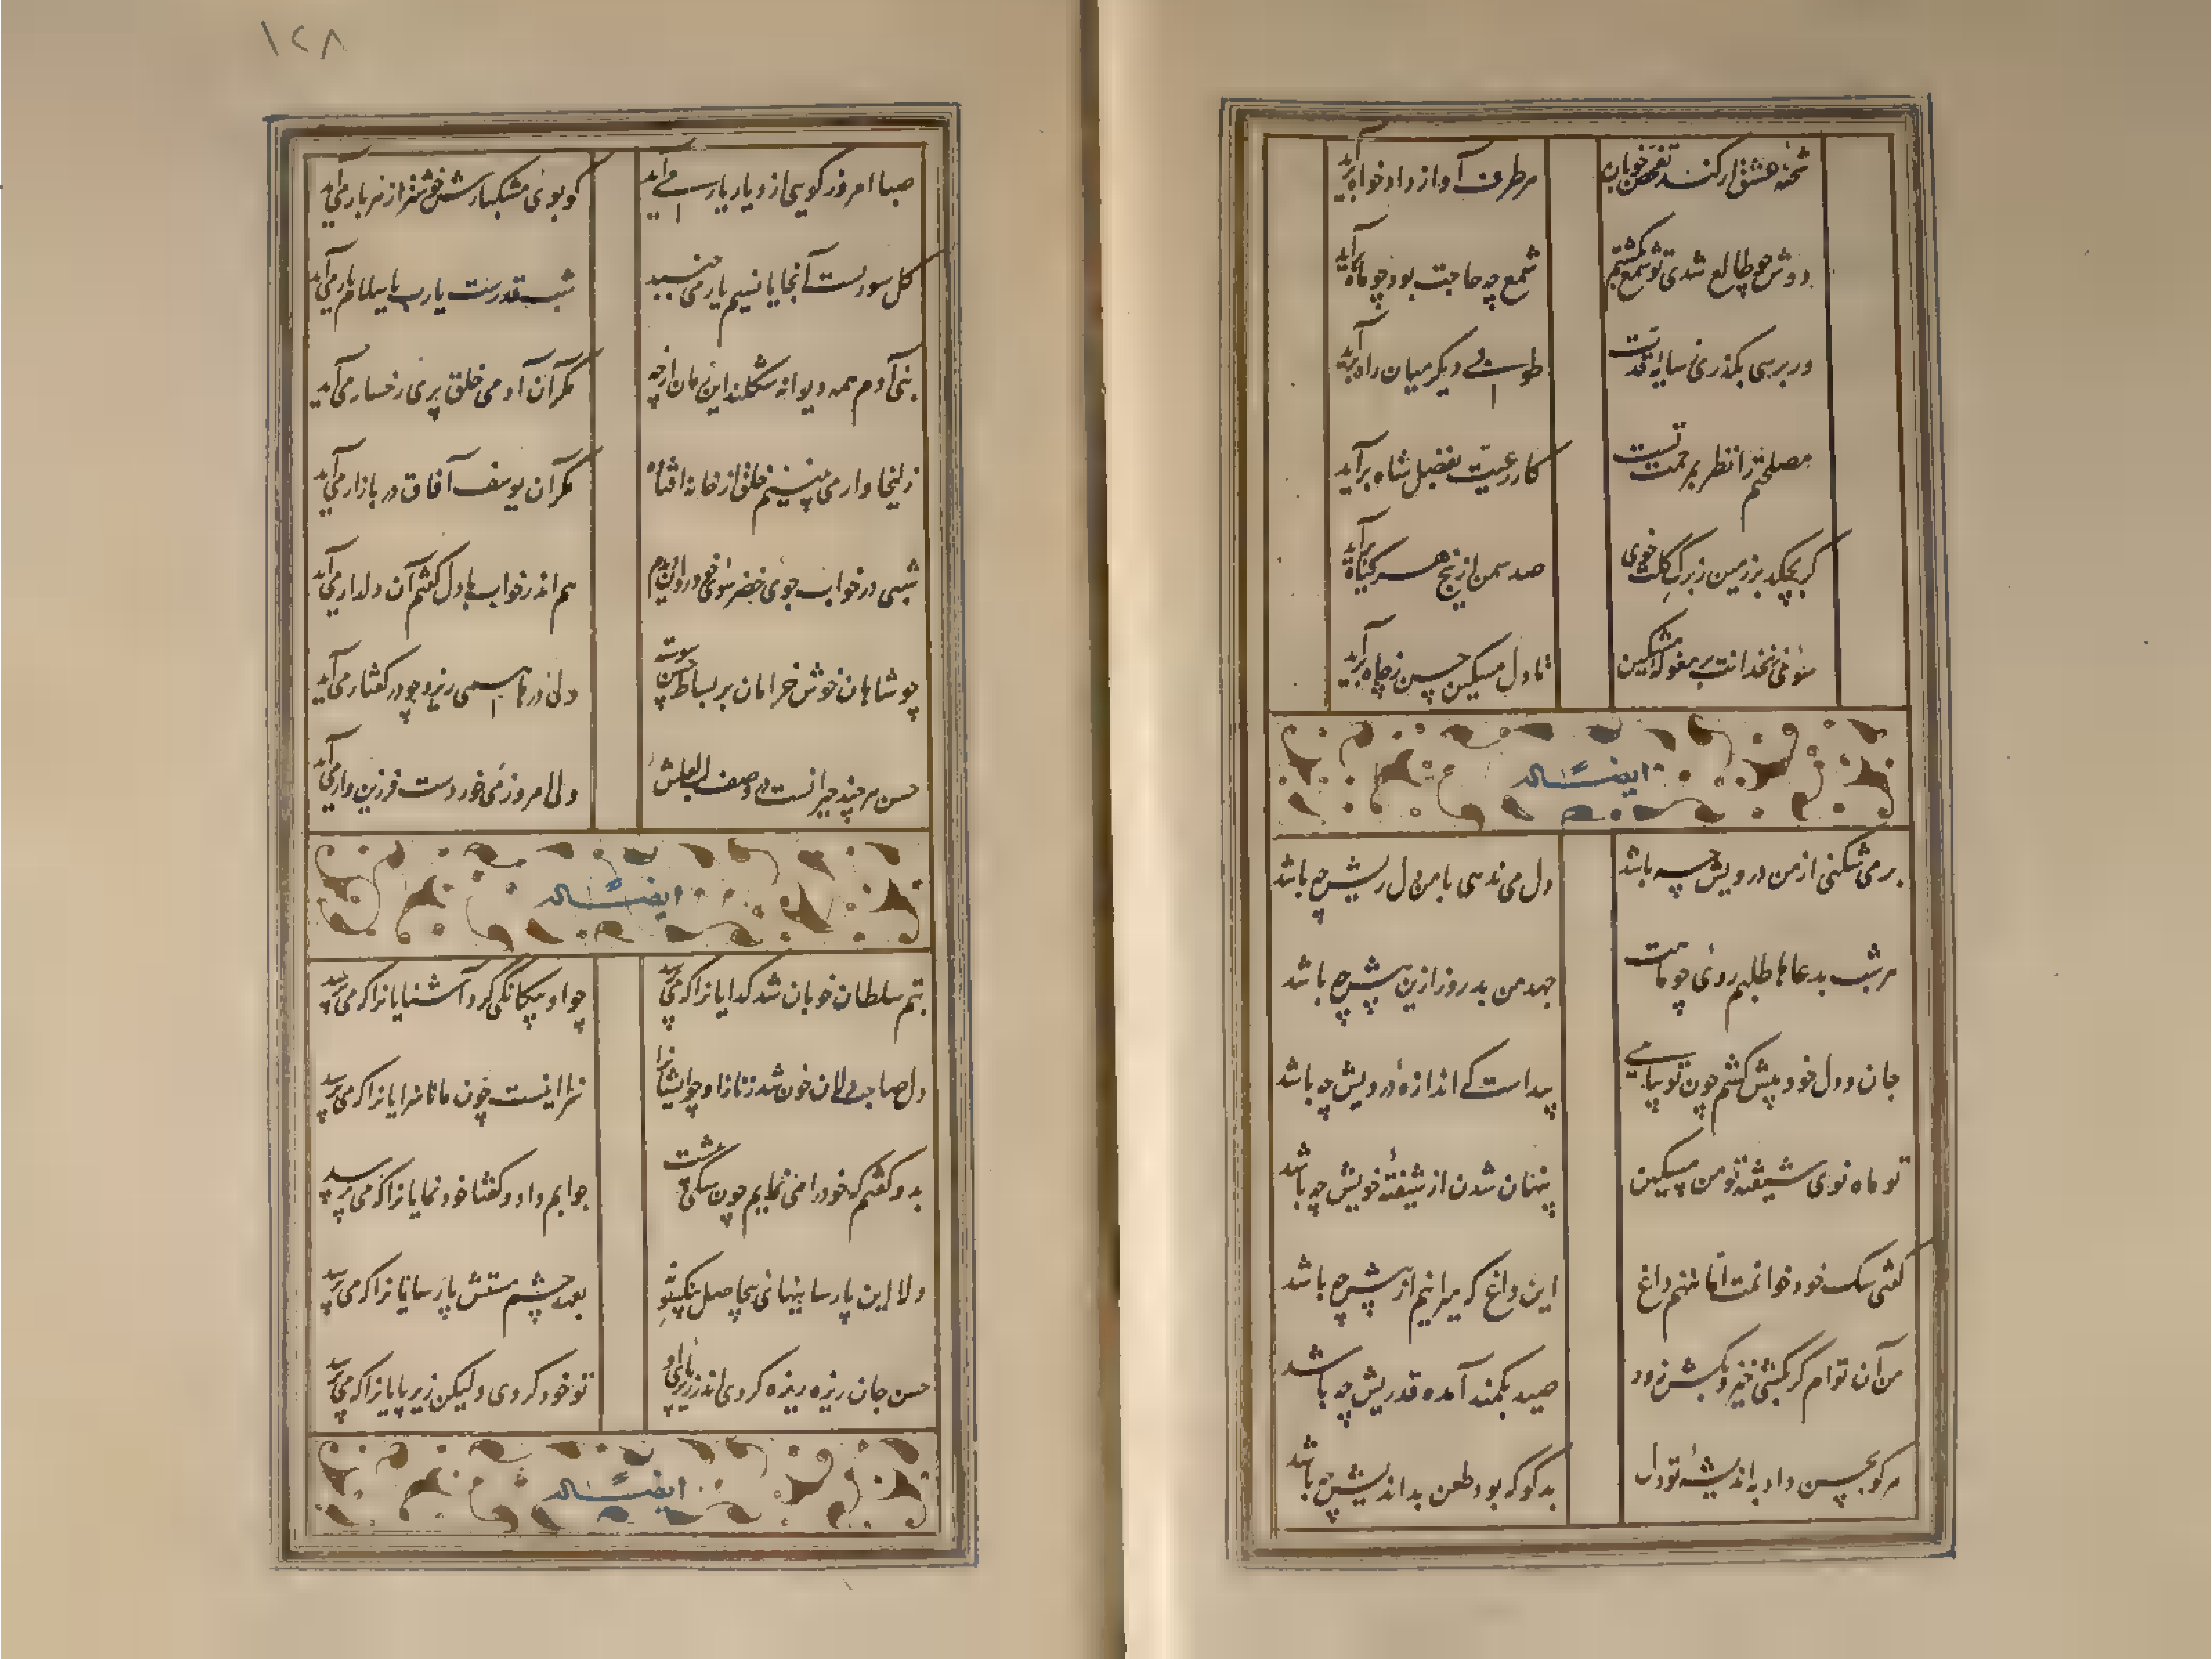 شحنهٔ عشق ار کند تفحص خوبان
هر طرف آواز داد خواه برآید
دوش چو طالع شدی تو شمع بکشتم
شمع چه حاجت بود چو ماه برآید
ور برسی بگذری ز سایهٔ قدت
طوبی دیگر میان راه برآید
مصلحتم را نظر بمرحمت تست
کار رعیت بفضل شاه برآید
گر بچکد بر زمین ز برگ گلت خوی
صد سمن از بیخ هر گیاه برآید
سوی زنخدانت بر مغولهٔ مشکین
تا دل مسکین حسن ز چاه برآید
ایضاً له
بر می شکنی از من درویش چه باشد
دل می ندهی با من دل ریش چه باشد
هر شب بدعاها طلبم روی چو ماهت
جهد من بد روز ازین بیش چه باشد
جان و دل خود پیش کشم چون تو بیایی
پیداست که اندازهٔ درویش چه باشد
تو ماه نوی شیفتهٔ تو من مسکین
پنهان شدن از شیفتهٔ خویش چه باشد
گفتی سگ خود خوانمت اما ننهم داغ
این داغ که میرانیم از پیش چه باشد
من آن توام گر بکشی خیز و بکش زود
صید بکمند آمده قدریش چه باشد
هر کو بحسن داد به اندیشهٔ تو دل
بدگو که بود طعن بداندیش چه باشد
١٢٨
صبا امروز گویی از دیار یار می آید
که بوی مشکبارش خوشتر از هر بار می آید
گل سوریست آنجا یا نسیم یار می جنبد
شب قدرست یارب یا سلام یار می آید
بنی آدم همه دیوانه شکلند این زمان از چه
مگر آن آدمی خلق پری رخسار می آید
زلیخا وار می بینم خلق از خانه افتاده
مگر آن یوسف آفاق در بازار می آید
شبی در خواب جوی خضر سوی خود روان دیدم
هم اندر خواب با دل گفتم آن دلدار می آید
چو شاهان خوش خرامان بر بساط حسن پیوسته
ولی درها همی ریزد چو در گفتار می آید
حسن هر چند حیرانست در وصف لب لعلش
ولی امروز می خوردست فرزین وار می آید
ایضاً له
بتم سلطان خوبان شد گدایانرا که می پرسد
چو او بیگانگی کرد آشنایانرا که می پرسد
دل صاحب دلان خون شد ز ناز او چو ایشانرا
سزا اینست چون ما ناسزایانرا که می پرسد
بدو گفتم که خود را می نمایم چون سگی پیشت
جوابم داد و گفتا خود نمایانرا که می پرسد
دلا این پارسا پنهانی بیحاصل بیکسو نه
بعهد چشم مستش پارسایانرا که می پرسد
حسن جان ریزه ریزه کردی اندر زیر پای او
تو خود کردی ولیکن زیر پایانرا که می پرسد
ایضاً له